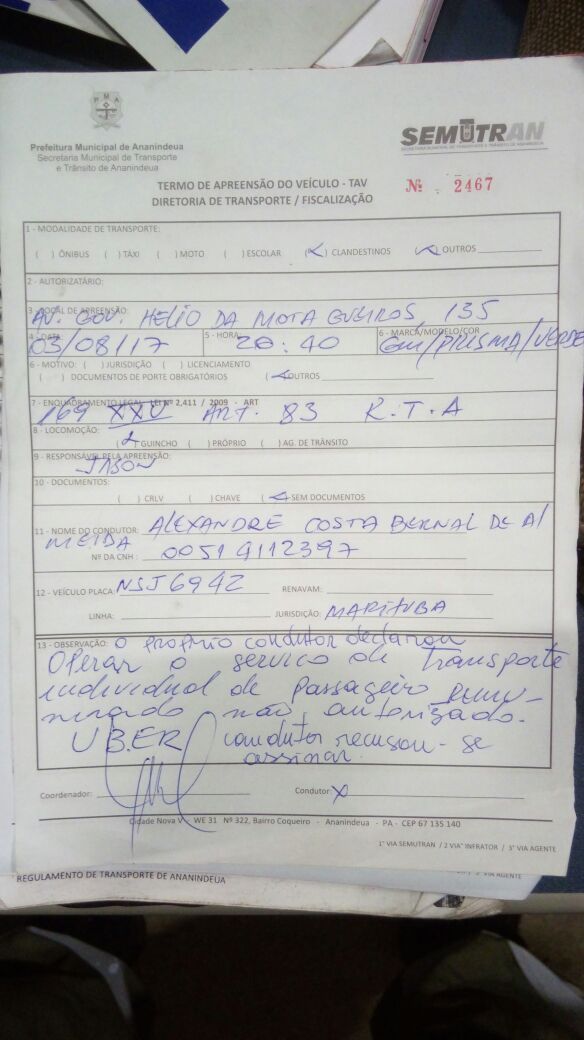 PMA
Prefeitura Municipal de Ananindeua
Secretaria Municipal de Transporte
e Trânsito de Ananindeua
SEMUTRAN
SECRETARIA MUNICIPAL DE TRANSPORTE E TRÂNSITO DE ANANINDEUA
TERMO DE APREENSÃO DO VEÍCULO - TAV
DIRETORIA DE TRANSPORTE / FISCALIZAÇÃO
Nº 2467
1 - MODALIDADE DE TRANSPORTE:
( ) ÔNIBUS ( ) TÁXI ( ) MOTO ( ) ESCOLAR (X) CLANDESTINOS (X) OUTROS
2 - AUTORIZATÁRIO:
3 - LOCAL DE APREENSÃO:
AV. GOV. HELIO DA MOTA GUEIROS, 135
4 - DATA: 5 - HORA: 6 - MARCA/MODELO/COR
03/08/17 20:40 GM/PRISMA/VERDE
6 - MOTIVO: ( ) JURISDIÇÃO ( ) LICENCIAMENTO
( ) DOCUMENTOS DE PORTE OBRIGATÓRIOS (X) OUTROS
7 - ENQUADRAMENTO LEGAL: LEI Nº 2,411 / 2009 - ART
169 XXV ART. 83 R.T.A
8 - LOCOMOÇÃO:
(X) GUINCHO ( ) PRÓPRIO ( ) AG. DE TRÂNSITO
9 - RESPONSÁVEL PELA APREENSÃO:
JASON
10 - DOCUMENTOS:
( ) CRLV ( ) CHAVE (X) SEM DOCUMENTOS
11 - NOME DO CONDUTOR: ALEXANDRE COSTA BERNAL DE Al
MEIDA Nº DA CNH: 00519112397
12 - VEÍCULO PLACA: NSJ6942 RENAVAM:
LINHA: JURISDIÇÃO: MARITUBA
13 - OBSERVAÇÃO: O proprio condutor declarou
Operar o servico de Transporte
individual de passageiro remu-
nerado não autorizado.
UBER condutor recusou-se
assinar.
Coordenador: Condutor X
Cidade Nova V - WE 31 Nº 322, Bairro Coqueiro - Ananindeua - PA - CEP 67 135 140
1° VIA SEMUTRAN / 2 VIA° INFRATOR / 3° VIA AGENTE
VIA AGENTE
REGULAMENTO DE TRANSPORTE DE ANANINDEUA